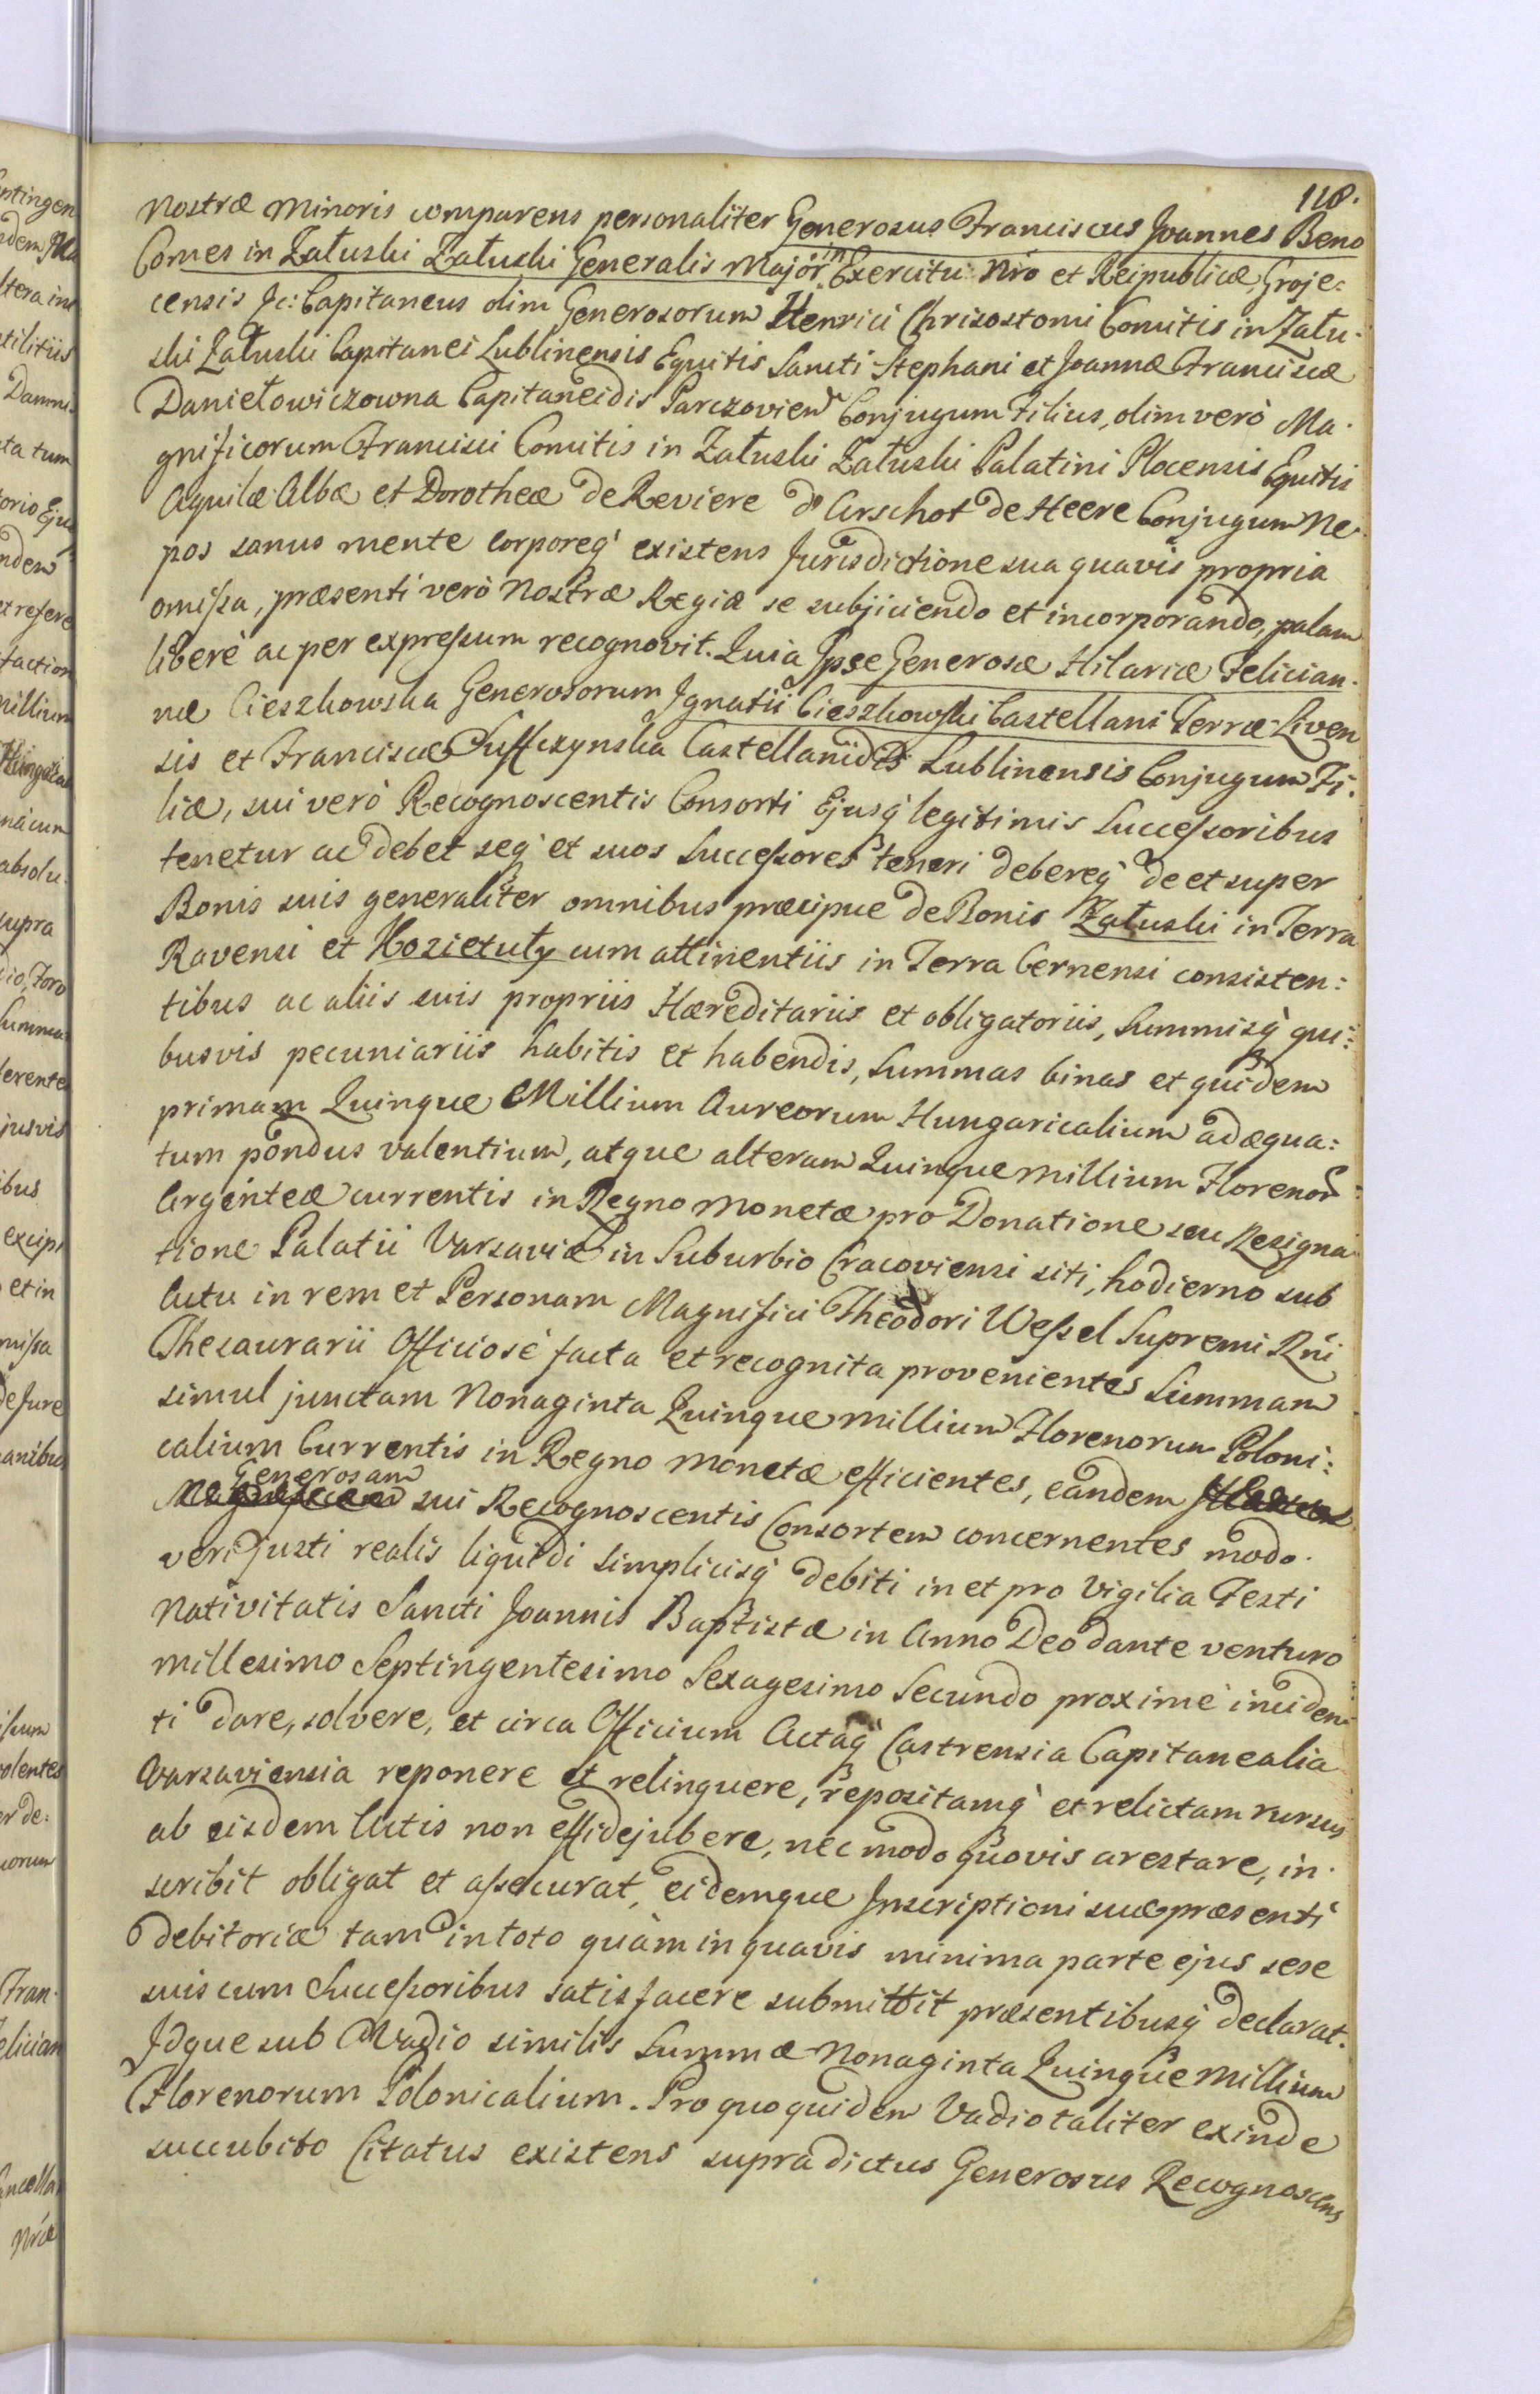 118.
Nostræ Minoris comparens personaliter Generosus Franciscus Joannes Beno
Comes in Załuski Załuski Generalis Major in Exercitu Nro et Reipublicæ, Groje=
censis &c: Capitaneus olim Generosorum Henrici Chrisostomi Comitis in Zału-
ski Załuski Capitanei Lublinensis Equitis Sancti Stephani et Joannæ Franciscæ
Daniełowiczowna Capitaneidis Parczovien Conjugum Filius, olim verò Ma-
gnificorum Francisci Comitis in Załuski Załuski Palatini Plocensis Equitis
Aquilæ Albæ et Dorotheæ de Reviere d'Arschot de Heere Conjugum Ne-
pos sanus mente corporeq' existens Jurisdictione sua quavis propria
omissa, præsenti verò Nostræ Regiæ se subjiciendo et incorporando, palam
liberè ac per expressum recognovit. Quia Ipse Generosæ Hilariæ Felician-
næ Cieszkowska Generosorum Ignatii Cieszkowski Castellani Terræ Liven
sis et Franciscæ Suffczynska Castellanidis Lublinensis Conjugum Fi-
liæ, sui verò Recognoscentis Consorti Ejusq' legitimis Successoribus
tenetur ac debet seq' et suos Successores teneri debereq' de et super
Bonis suis generaliter omnibus præcipue de Bonis Załuski in Terra
Ravensi et Kozietuły cum attinentiis in Terra Cernensi consisten=
tibus ac aliis suis propriis Hæreditariis et obligatoriis, Summisq' qui=
busvis pecuniariis habitis et habendis, Summas binas et quidem
primam Quinque Millium Aureorum Hungaricalium adæqua=
tum pondus valentium, atque alteram Quinque Millium Florenor
Argenteæ currentis in Regno Monetæ pro Donatione seu Resigna-
tione Palatii Varsaviæ in Suburbio Cracoviensi siti, hodierno sub
Actu in rem et Personam Magnifici Theodori Wessel Supremi Rñi
Thesaurarii Officiosè facta et recognita provenientes Summam
simul junctam Nonaginta Quinque Millium Florenorum Poloni=
calium Currentis in Regno Monetæ efficientes, eandem
Generosam sui Recognoscentis Consortem concernentes modo
veri Justi realis liquidi simplicisq' debiti in et pro Vigilia Festi
Nativitatis Sancti Joannis Baptistæ in Anno Deo dante venturo
Millesimo Septingentesimo Sexagesimo Secundo proximè inciden-
ti dare, solvere, et circa Officium Actaq' Castrensia Capitanealia
Varsaviensia reponere et relinquere, repositamq' et relictam rursus
ab eisdem Actis non effidejubere, nec modo quovis arestare, in-
scribit obligat et assecurat, eidemque Inscriptioni suæ præsenti
debitoriæ tam in toto quàm in quavis minima parte ejus sese
suis cum Successoribus satisfacere submittit præsentibusq' declarat.
Idque sub Vadio similis Summæ Nonaginta Quinque Millium
Florenorum Polonicalium. Pro quo quidem Vadio taliter exinde
succubito Citatus existens supradictus Generosus Recognoscens